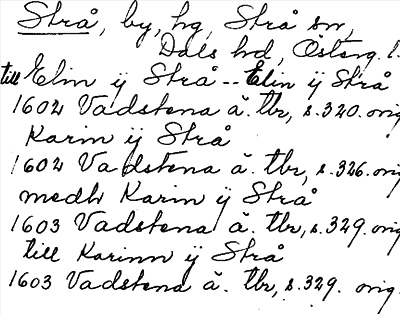 Strå, by, hg, Strå sn,
Dals hd, Österg. l.
till Elin ij Strå -- Elin ij Strå
1602 Vadstena ä. tbr, s. 320. orig
Karin ij Strå
1602 Vadstena ä. tbr, s. 326. orig
medh Karin ij Strå
1603 Vadstena ä. tbr, s. 329. orig
till Karinn ij Strå
1603 Vadstena ä. tbr, s. 329. orig.